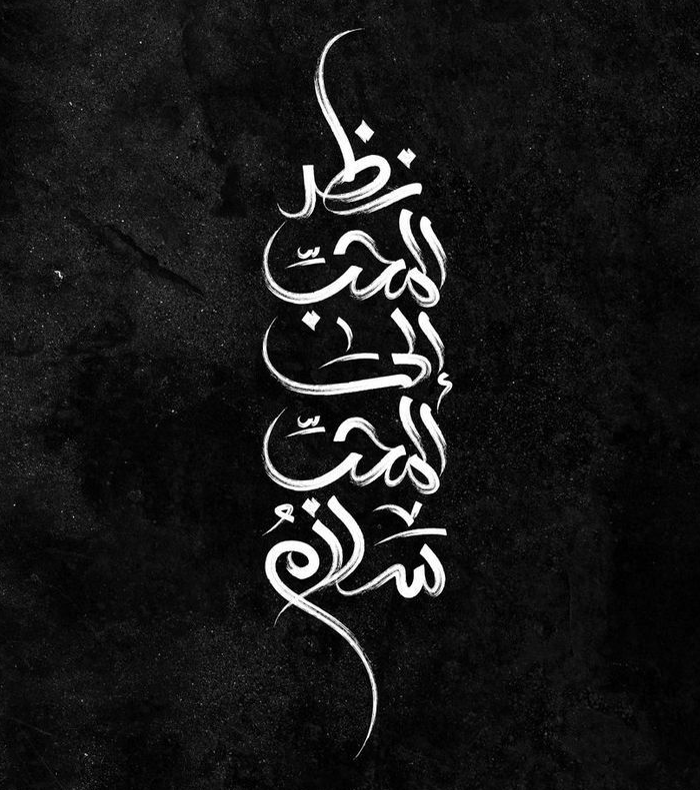 نظر
المحبّ
إلى
المحبّ
سلامٌ